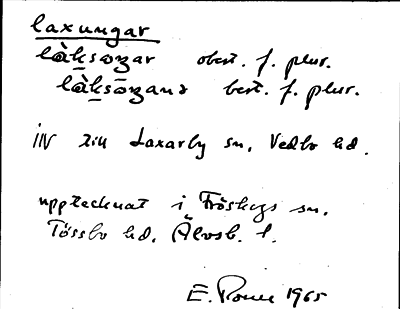 laxungar
làksoƞar obest. f. plur.
làksoƞana best. f. plur.
IN till Laxarby sn, Vedbo hd.
upptecknat i Fröskogs sn.
Tössbo hd. Älvsb. l.
1965